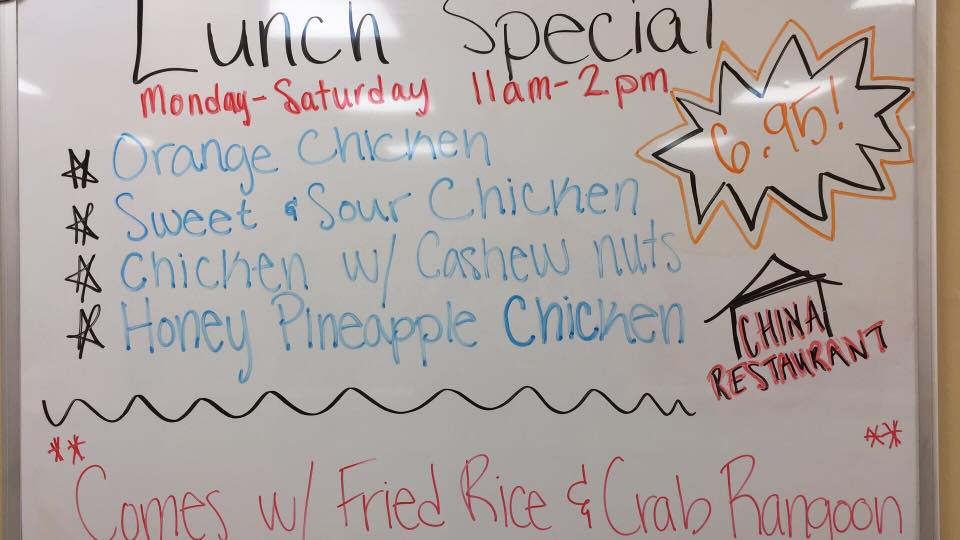 Lunch Special
Monday-Saturday 11am-2pm
6.95!
* Orange Chicken
* Sweet & Sour Chicken
* Chicken w/ Cashew nuts
* Honey Pineapple Chicken
CHINA
RESTAURANT
** **
Comes w/ Fried Rice & Crab Rangoon